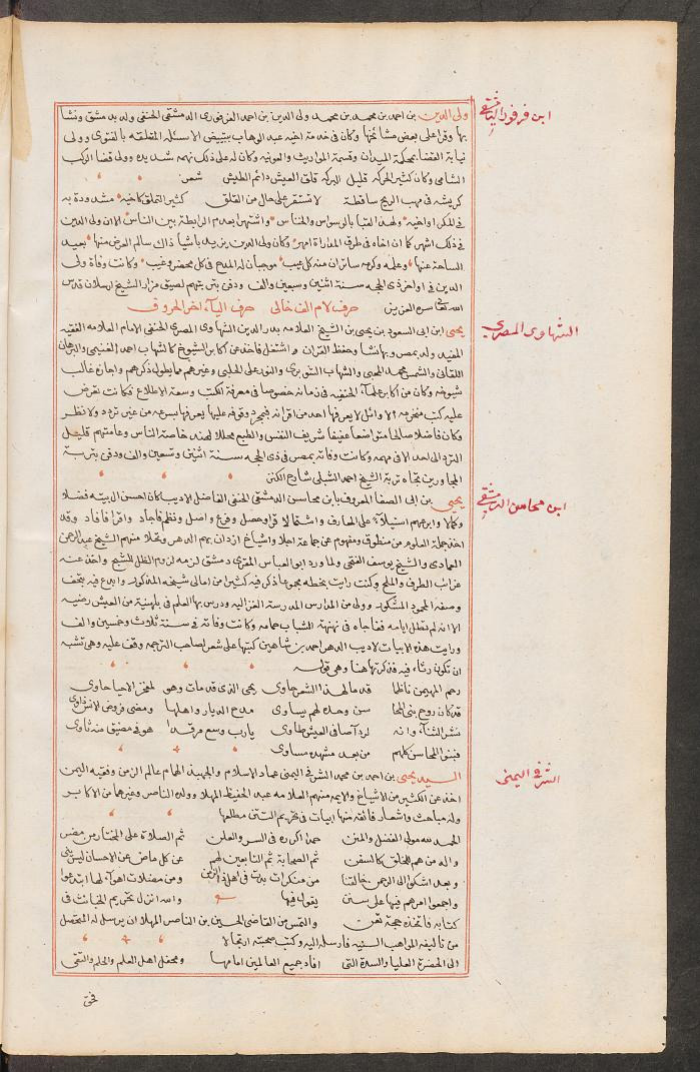 ابن فرفور الدمشقي
ولى الدين بن احمد بن محمد بن محمد ولى الدين بن احمد الفرفورى الدمشقى الحنفى ولد بدمشق ونشا
بها وقرا على بعض مشائخها وكان فى خدمة اخيه عبد الوهاب بتبييض الاسئله المتعلقه بالفتوى وولى
نيابة القضا بمحكمة الميدان وقسمة المواريث والعونيه وكان له على ذلك نهمه شديده وولى قضا الركب
الشامى وكان كثير الحركه قليل البركه قلق العيش دائم الطيش شعر
كريشه فى مهب الريح ساقطة لا تستقر على حال من القلق كثير التملق كاخيه مشدودة به
فى المكر اواخيه ولهذا لقبا بالوسواس والخناس واشتهرا بعدم الرابطة بين الناس الا ان ولى الدين
فى ذلك اشهر كما ان اخاه فى طرق المداراة امهر وكان ولى الدين يزيد باشيا ذلك سالم العرض منها بعيد
الساحة عنها وعلمه وكرمه ساتران منه كل عيب موجبان له المدح فى كل محضر وغيب وكانت وفاة ولى
الدين فى اواخر ذى الحجه سنة اثنين وسبعين والف ودفن بتربتهم لصيق مزار الشيخ ارسلان قدس
الله تعالى سره العزيز حرف لام الف خالى حرف الياء اخر الحروف
الشهاوى المصرى
يحيى ابن ابى السعود بن يحيى بن الشيخ العلامه بدر الدين الشهاوى المصرى الحنفى الامام العلامه الفقيه
المفيد ولد بمصر وبها نشا وحفظ القران واشتغل فاخذ عن اكابر الشيوخ كالشهاب احمد الغنيمى والبرهان
اللقانى والشمس محمد المحبى والشهاب الشوبرى والنور على الحلبى وغيرهم مما يطول ذكرهم واجازه غالب
شيوخه وكان من اكابر علماء الحنفيه فى زمانه خصوصا فى معرفة الكتب وسعة الاطلاع فكانت تعرض
عليه كتب منخرمه الاوائل لا يعرفها احد من اقرانه فبمجرد وقوفه عليها يعرفها بسرعه من غير تردد ولا نظر
وكان فاضلا صالحا متواضعا عفيفا شريف النفس والطبع مجللا عند خاصة الناس وعامتهم قليل
التردد الى احد الا فى مهمه وكانت وفاته بمصر فى ذى الحجه سنة اثنين وتسعين والف ودفن بتربة
المجاورين تجاه تربة الشيخ احمد الشلبى شارح الكنز
ابن محاسن الدمشقي
يحيى بن ابى الصفا المعروف بابن محاسن الدمشقى الحنفى الفاضل الاديب كان احسن ال بيته فضلا
وكمالا وابرعهم استيلاء على المعارف واشتمالا قرا وحصل وفرع واصل ونظم فاجاد واقرا فافاد وقد
اخذ جملة العلوم من منطوق ومفهوم عن جماعة اجلا واشياخ ازدان بهم الدهر وتحلا منهم الشيخ عبد الرحمن
العمادى والشيخ يوسف الفتحى ولما ورد ابو العباس المقرى دمشق لزمه لزوم الظل للشبح واخذ عنه
غرائب الطرف والملح وكنت رايت بخطه مجموعا ذكر فيه كثيرا من امالى شيخه المذكور وابدع فيه بتحف
وصفه المحمود المشكور وولى من المدارس المدرسة الغزاليه ودرس بها العلم فى بلهنية من العيش رضيه
الا انه لم تطل ايامه ففاجاه فى نهنهة الشباب حمامه وكانت وفاته فى سنة ثلاث وخمسين والف
ورايت هذه الابيات لاديب الدهر احمد بن شاهين كتبها على شعر لصاحب الترجمه وقف عليه وهى تشبه
ان تكون رثاء فيه فذكرتها هنا وهى قوله
رحم المهيمن ناظما قد ما لهذا الشعر حاوى يحيى الذى قد مات وهو لمحض الاحيا حاوى
قد كان روح بنى الحجا سن وحده لهم يساوى مدح الديار واهلها ومضى فروض الانس ثاوى
نشر الثناء وانه لرداء صافى العيش طاوى يارب وسع مرقدا هو فى مضيق منه ثاوى
فبنو المحاسن كلهم من بعد مشهده مساوى
الشرفى اليمنى
السيد يحيى بن احمد بن محمد الشرفى اليمنى عماد الاسلام والجهبذ الهمام عالم الزمن وفقيه اليمن
اخذ عن الكثير من الاشياخ والايمه منهم العلامه عبد الحفيظ المهلا وولده الناصر وغيرهما من الاكابر
وله مباحث واشعار فائقه منها ابيات فى تحريم التتن مطلعها
الحمد لله مولى الفضل والمنن حمدا اكرره فى السر والعلن ثم الصلاة على المختار من مضر
واله من هم للخلق كالسفن ثم الصحابة ثم التابعين لهم عن كل ماض من الاحسان ليس ينى
وبعد اشكو الى الرحمن خالقنا من منكرات بدت فى اهل ذا الزمن ومن مضلات اهواء لها ابتدعوا
واجمعوا امرهم فيها على سنن يقول فيها والله انزل تحريم الخبائث فى
كتابه فاتخذه حجة تعن والتمس من القاضى الحسين بن الناصر المهلا ان يرسل له المتحصل
من تاليفه المواهب السنيه فارسله اليه وكتب صحبته ارتجالا
الى الحضرة العليا والسدة التى افاد جميع العالمين امامها ومحفل اهل العلم والحلم والتقى
فتى